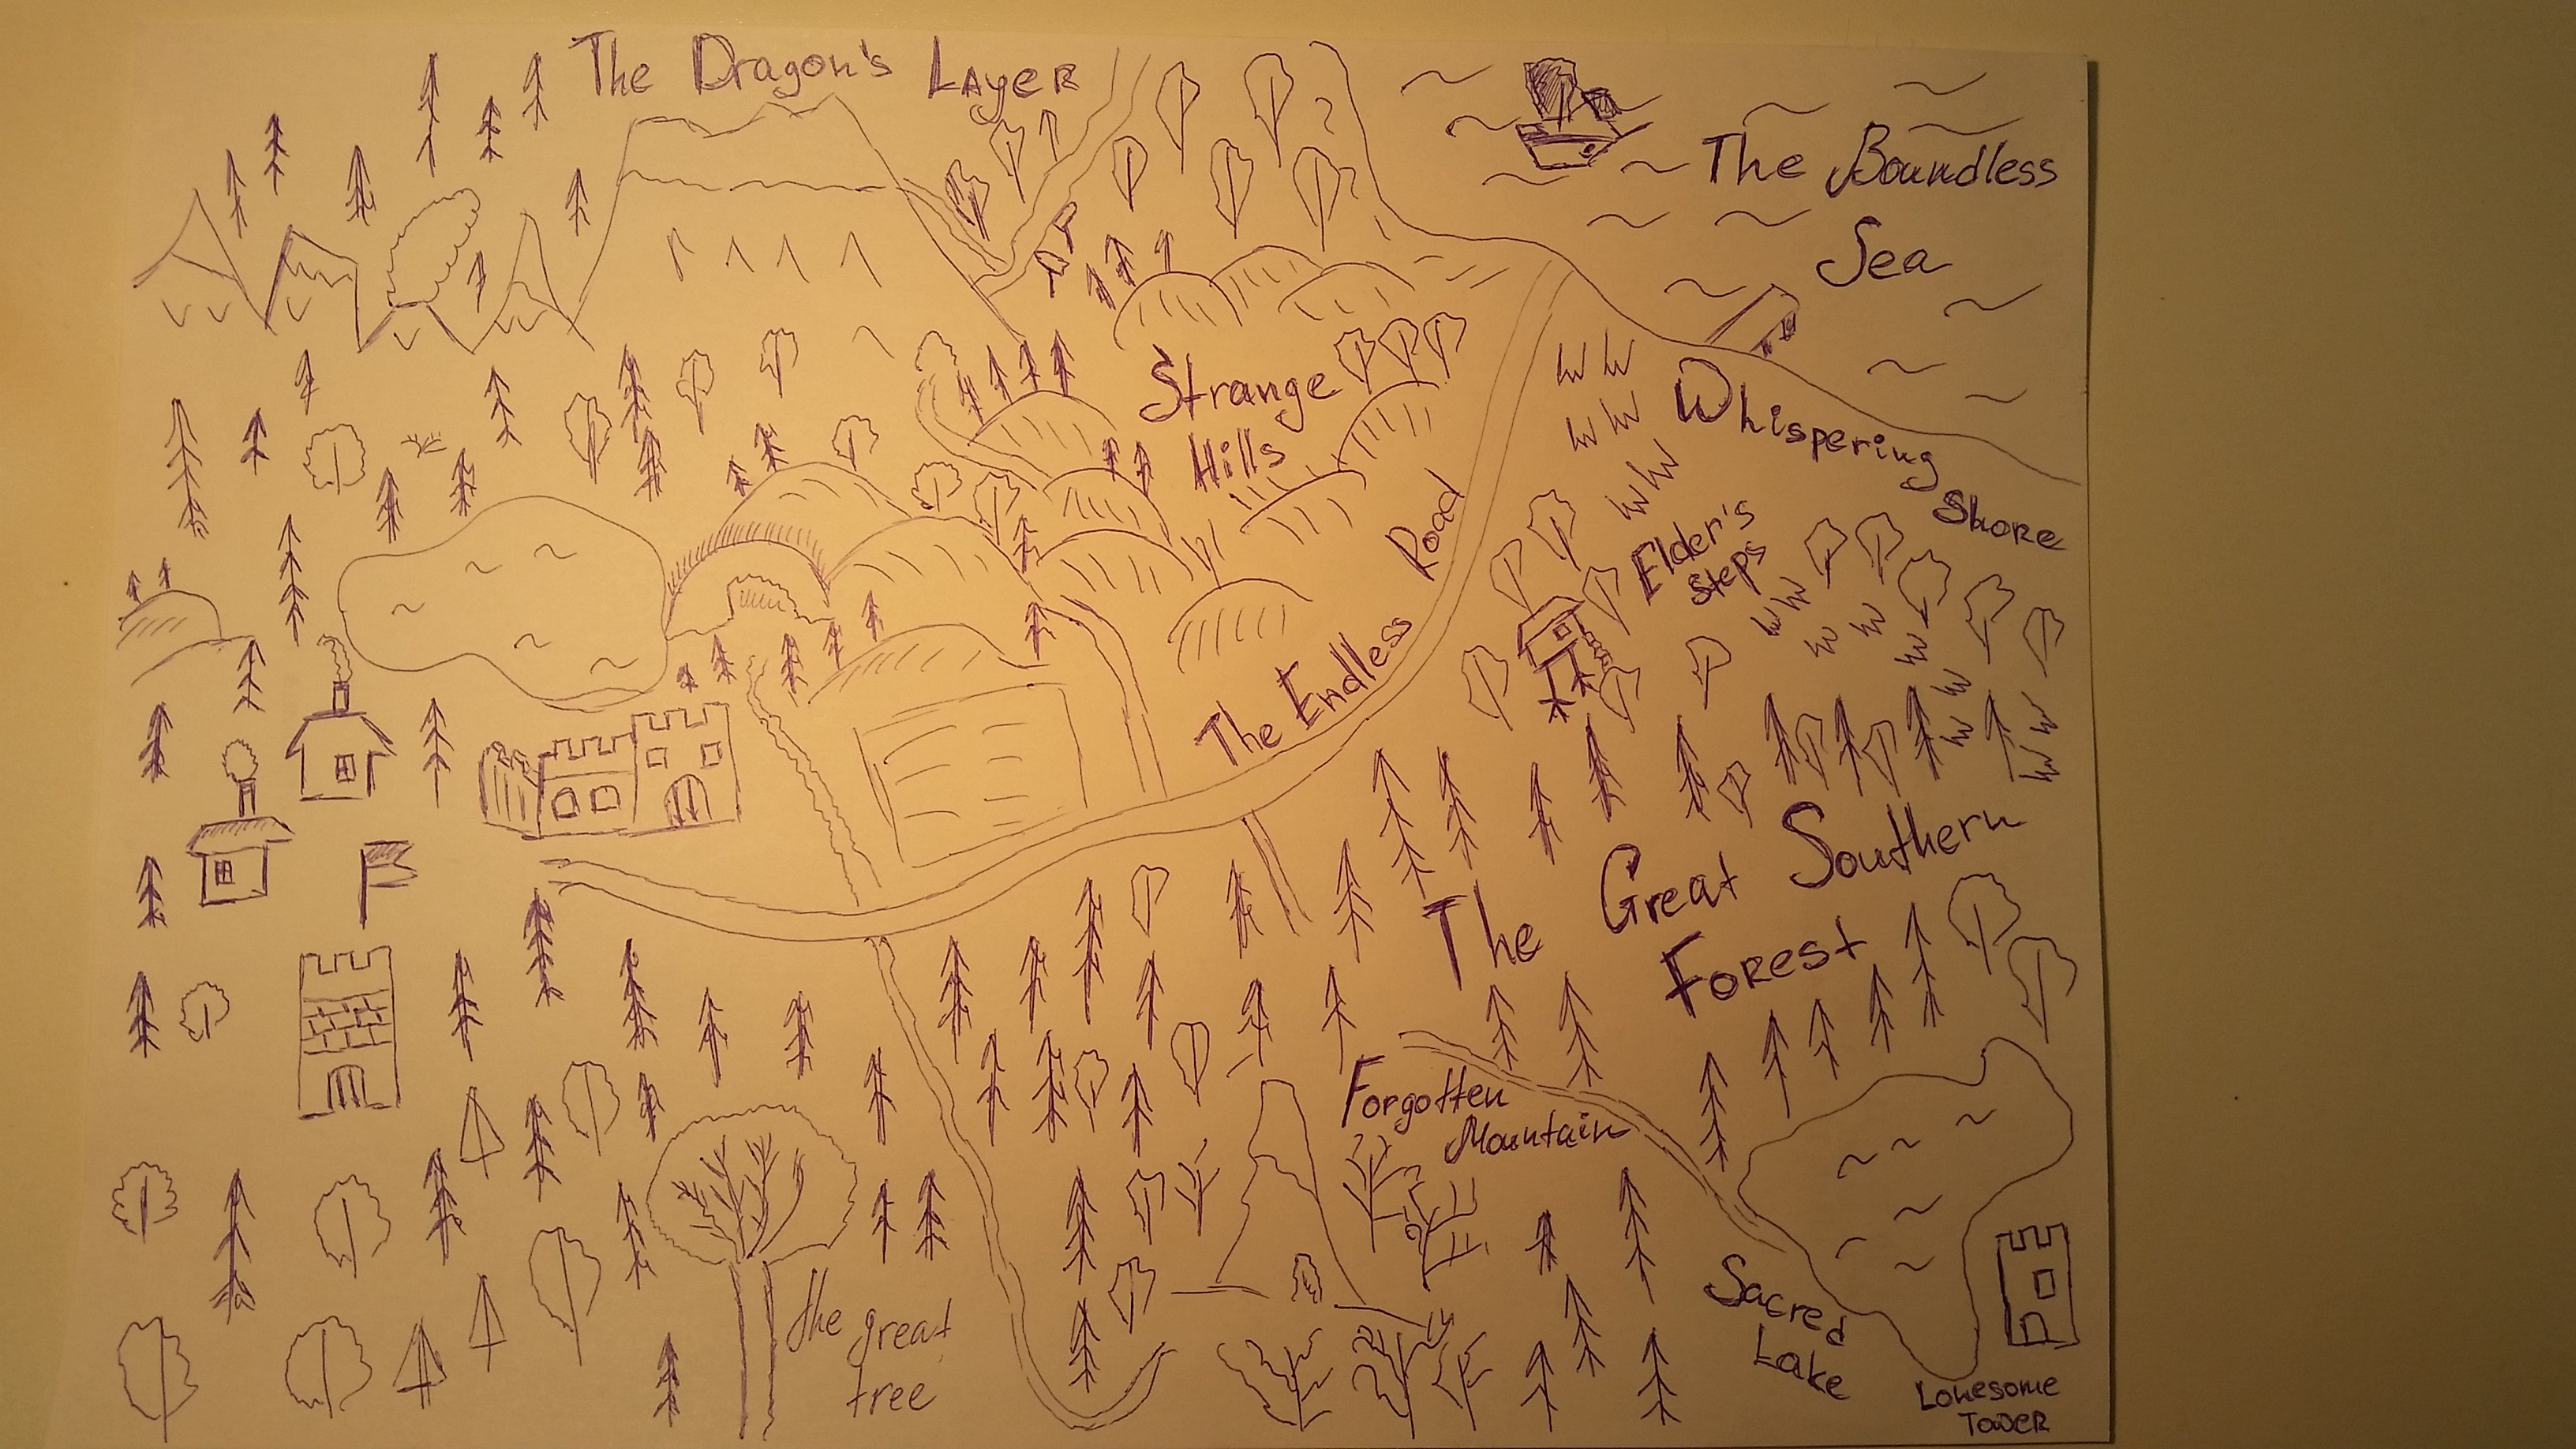 The Dragon's Layer
The Boundless
Sea
Strange
Hills
Whispering
Shore
Elder's
Steps
The Endless Road
The Great Southern
Forest
Forgotten
Mountain
the great
tree
Sacred
Lake
Lonesome
Tower